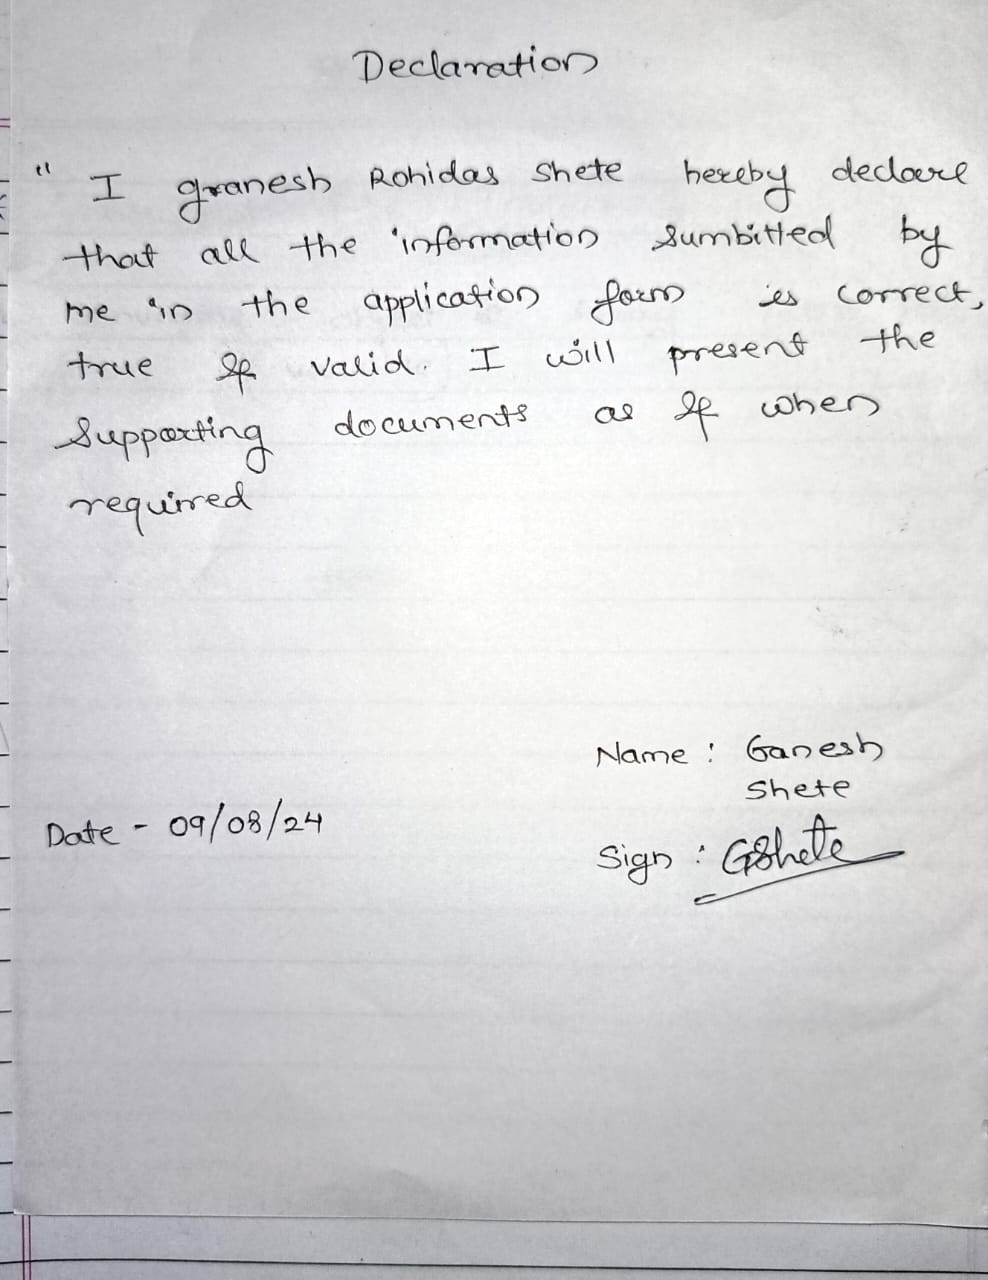 Declaration
" I granesh Rohidas Shete hereby declare
that all the information sumbitted by
me in the application form is correct,
true & valid. I will present the
Supporting documents as & when
required
Name : Ganesh
Shete
Date - 09/08/24
Sign : GShete